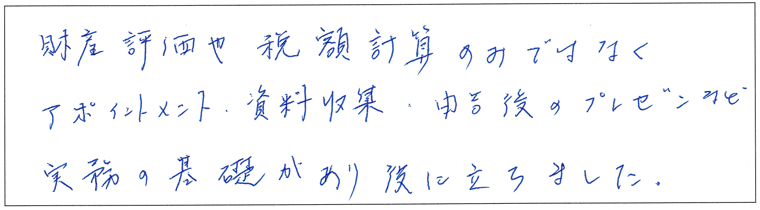 財産評価や税額計算のみではなく
アポイントメント、資料収集、申告後のプレゼンなど
実務の基礎があり役に立ちました。